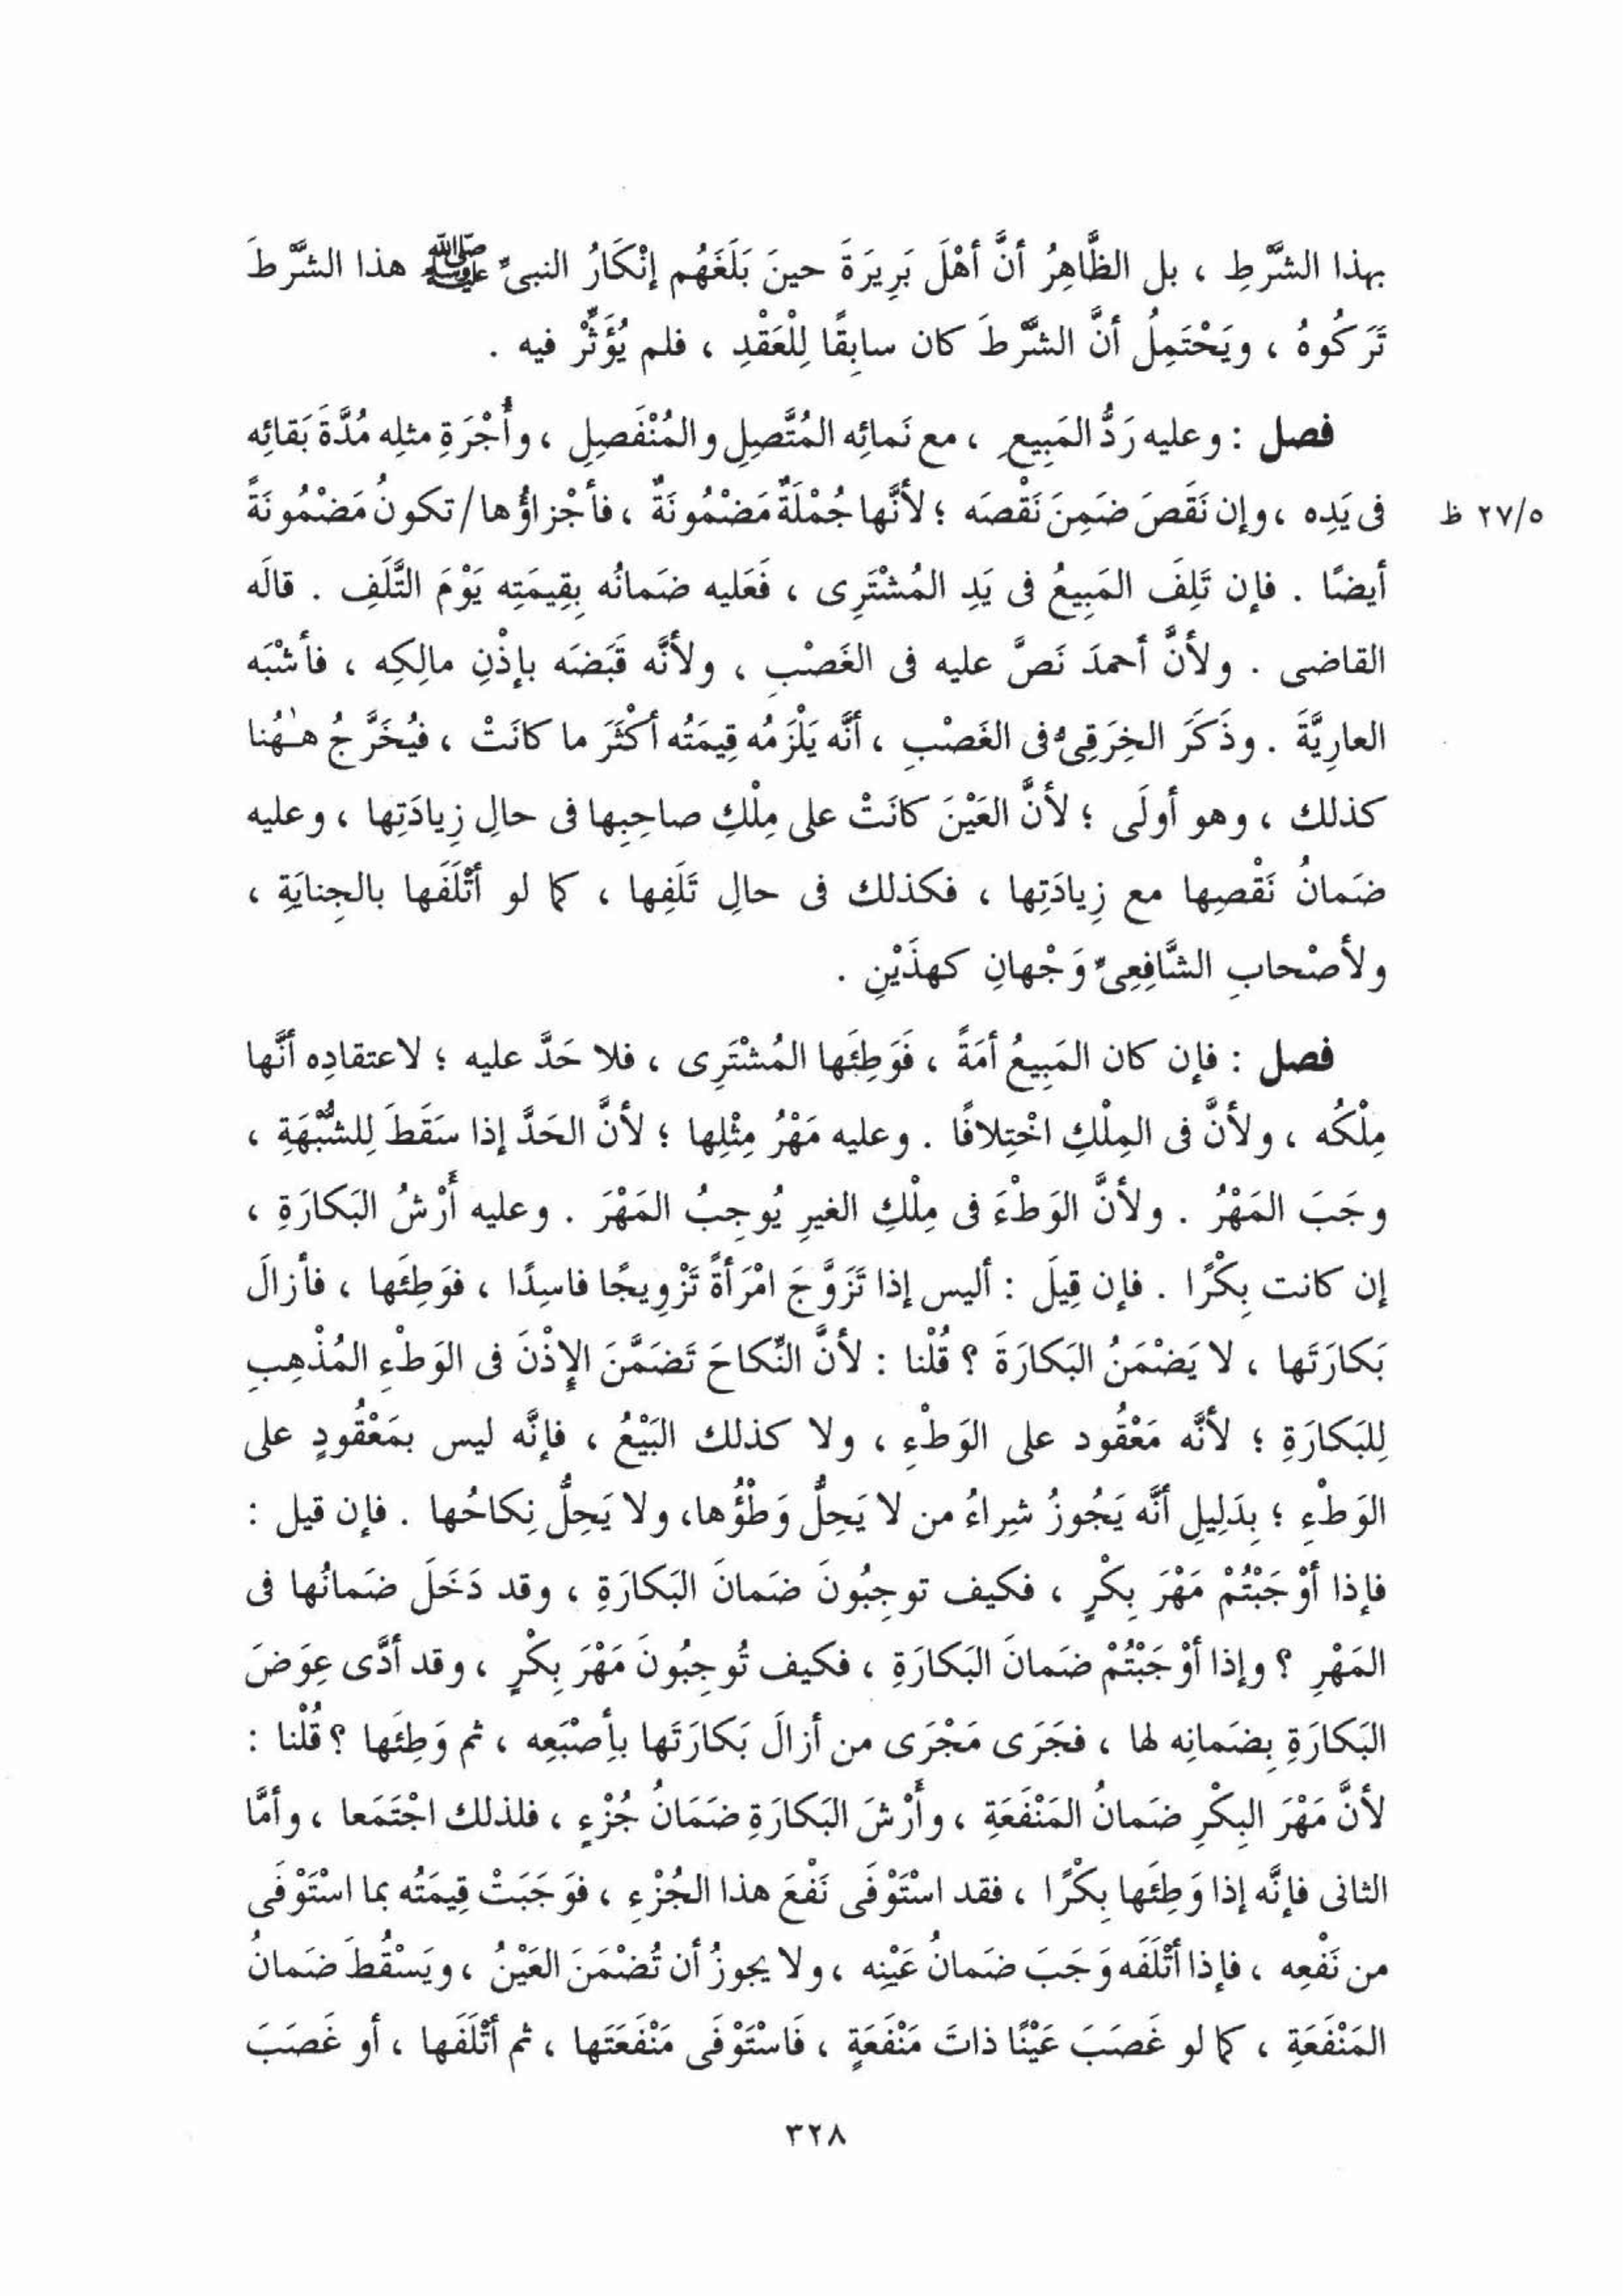 بهذا الشَّرْطِ ، بل الظَّاهِرُ أنَّ أهْلَ بَرِيرَةَ حينَ بَلَغَهُم إنْكَارُ النبىِّ ﷺ هذا الشَّرْطَ
تَرَكُوهُ ، ويَحْتَمِلُ أنَّ الشَّرْطَ كان سابِقًا لِلْعَقْدِ ، فلم يُؤَثِّرْ فيه .
فصل : وعليه رَدُّ المَبِيعِ ، مع نَمائِه المُتَّصِلِ والمُنْفَصِلِ ، وأُجْرَةِ مثلِه مُدَّةَ بَقائِه
فى يَدِه ، وإن نَقَصَ ضَمِنَ نَقْصَه ؛ لأنَّها جُمْلَةٌ مَضْمُونَةٌ ، فأجْزاؤُها / تكونُ مَضْمُونَةً
٢٧/٥ ظ
أيضًا . فإن تَلِفَ المَبِيعُ فى يَدِ المُشْتَرِى ، فَعَليه ضَمانُه بِقِيمَتِه يَوْمَ التَّلَفِ . قالَه
القاضى . ولأنَّ أحمدَ نَصَّ عليه فى الغَصْبِ ، ولأنَّه قَبَضَه بإذْنِ مالِكِه ، فأشْبَه
العارِيَّةَ . وذَكَرَ الخِرَقِىُّ فى الغَصْبِ ، أنَّه يَلْزَمُه قِيمَتُه أكْثَرَ ما كانَتْ ، فيُخَرَّجُ هٰهُنا
كذلك ، وهو أولَى ؛ لأنَّ العَيْنَ كانَتْ على مِلْكِ صاحِبِها فى حالِ زِيادَتِها ، وعليه
ضَمانُ نَقْصِها مع زِيادَتِها ، فكذلك فى حالِ تَلَفِها ، كما لو أتْلَفَها بالجِنايَةِ ،
ولأصْحابِ الشَّافِعِىِّ وَجْهانِ كهذَيْنِ .
فصل : فإن كان المَبِيعُ أمَةً ، فَوَطِئَها المُشْتَرِى ، فلا حَدَّ عليه ؛ لاعتقادِه أنَّها
مِلْكُه ، ولأنَّ فى المِلْكِ اخْتِلافًا . وعليه مَهْرُ مِثْلِها ؛ لأنَّ الحَدَّ إذا سَقَطَ لِلشُّبْهَةِ ،
وجَبَ المَهْرُ . ولأنَّ الوَطْءَ فى مِلْكِ الغيرِ يُوجِبُ المَهْرَ . وعليه أَرْشُ البَكارَةِ ،
إن كانت بِكْرًا . فإن قِيلَ : أليس إذا تَزَوَّجَ امْرَأةً تَزْوِيجًا فاسِدًا ، فوَطِئَها ، فأزالَ
بَكارَتَها ، لا يَضْمَنُ البَكارَةَ ؟ قُلْنا : لأنَّ النِّكاحَ تَضَمَّنَ الإِذْنَ فى الوَطْءِ المُذْهِبِ
لِلبَكارَةِ ؛ لأنَّه مَعْقُود على الوَطْءِ ، ولا كذلك البَيْعُ ، فإنَّه ليس بمَعْقُودٍ على
الوَطْءِ ؛ بِدَلِيلِ أنَّه يَجُوزُ شِراءُ من لا يَحِلُّ وَطْؤُها، ولا يَحِلُّ نِكاحُها . فإن قيل :
فإذا أوْجَبْتُمْ مَهْرَ بِكْرٍ ، فكيف توجِبُونَ ضَمانَ البَكارَةِ ، وقد دَخَلَ ضَمانُها فى
المَهْرِ ؟ وإذا أوْجَبْتُمْ ضَمانَ البَكارَةِ ، فكيف تُوجِبُونَ مَهْرَ بِكْرٍ ، وقد أدَّى عِوَضَ
البَكارَةِ بِضَمانِه لها ، فجَرَى مَجْرَى من أزالَ بَكارَتَها بأِصْبَعِه ، ثم وَطِئَها ؟ قُلْنا :
لأنَّ مَهْرَ البِكْرِ ضَمانُ المَنْفَعَةِ ، وأَرْشَ البَكارَةِ ضَمَانُ جُزْءٍ ، فلذلك اجْتَمَعا ، وأمَّا
الثانى فإنَّه إذا وَطِئَها بِكْرًا ، فقد اسْتَوْفَى نَفْعَ هذا الجُزْءِ ، فوَجَبَتْ قِيمَتُه بما اسْتَوْفَى
من نَفْعِه ، فإذا أتْلَفَه وَجَبَ ضَمانُ عَيْنِه ، ولا يجوزُ أن تُضْمَنَ العَيْنُ ، ويَسْقُطَ ضَمانُ
المَنْفَعَةِ ، كما لو غَصَبَ عَيْنًا ذاتَ مَنْفَعَةٍ ، فَاسْتَوْفَى مَنْفَعَتَها ، ثم أتْلَفَها ، أو غَصَبَ
٣٢٨